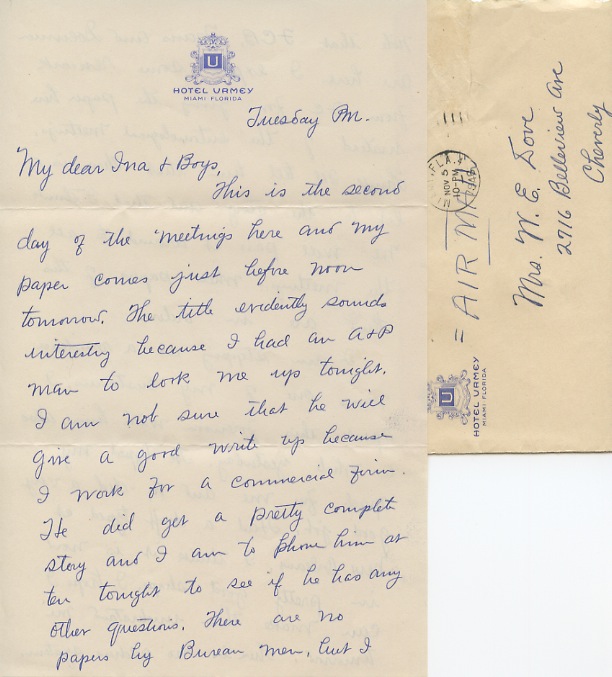 U
HOTEL URMEY
MIAMI-FLORIDA
Tuesday PM.
My dear Ina & Boys,
This is the second
day of the meetings here and my
paper comes just before noon
tomorrow. The title evidently sounds
interesting because I had an A&P
man to look me up tonight.
I am not sure that he will
give a good write up because
I work for a commercial firm.
He did get a pretty complete
story and I am to phone him at
ten tonight to see if he has any
other questions. There are no
papers by Bureau men, but I
FLA.
NOV 5
10-PM
= AIR MAIL
Mrs. W. E. Dove
2716 Belleview Ave
Cheverly
U
HOTEL URMEY
MIAMI-FLORIDA